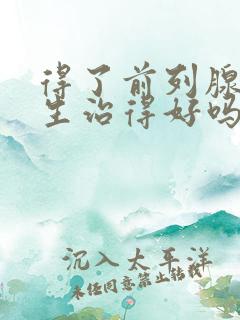 得了前列腺
生治得好吗
沉入太平洋
未经同意禁止转载